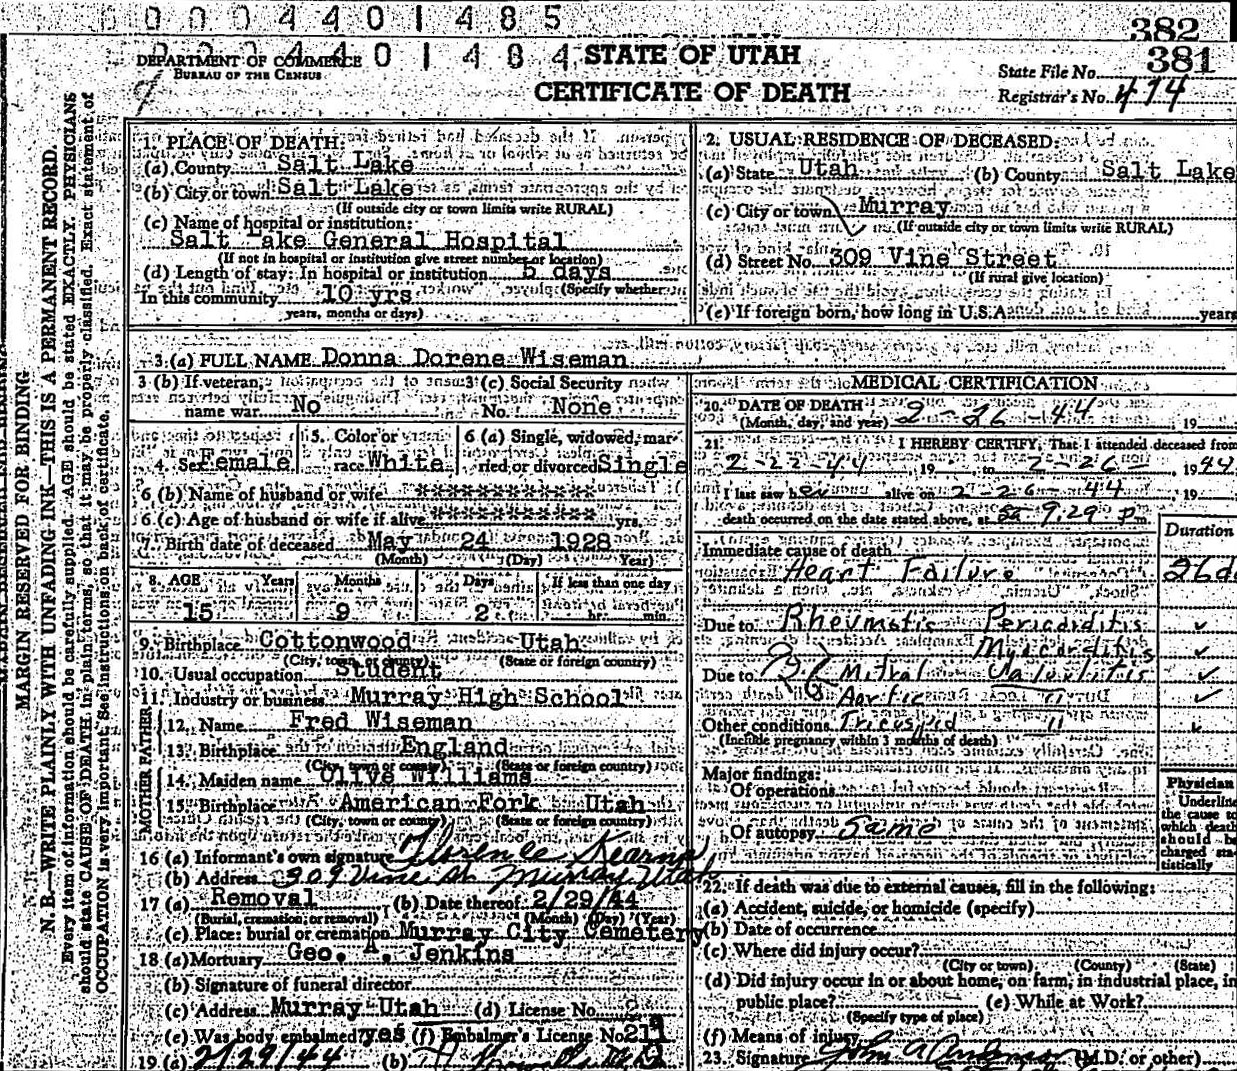 0004401485
382
DEPARTMENT OF COMMERCE
BUREAU OF THE CENSUS
0004401484
STATE OF UTAH
CERTIFICATE OF DEATH
State File No. 381
Registrar's No. 474
MARGIN RESERVED FOR BINDING
N. B.—WRITE PLAINLY WITH UNFADING INK—THIS IS A PERMANENT RECORD.
Every item of information should be carefully supplied. AGE should be stated EXACTLY. PHYSICIANS
should state CAUSE OF DEATH in plain terms, so that it may be properly classified. Exact statement of
OCCUPATION is very important. See instructions on back of certificate.
1. PLACE OF DEATH:
(a) County Salt Lake
(b) City or town Salt Lake
(If outside city or town limits write RURAL)
(c) Name of hospital or institution:
Salt Lake General Hospital
(If not in hospital or institution give street number or location)
(d) Length of stay: In hospital or institution 5 days
(Specify whether
In this community 10 yrs
years, months or days)
2. USUAL RESIDENCE OF DECEASED:
(a) State Utah (b) County Salt Lake
(c) City or town Murray
(If outside city or town limits write RURAL)
(d) Street No. 309 Vine Street
(If rural give location)
(e) If foreign born, how long in U.S.A. years
3. (a) FULL NAME Donna Dorene Wiseman
3 (b) If veteran, name war No
3 (c) Social Security No. None
4. Sex Female
5. Color or race White
6 (a) Single, widowed, married or divorced Single
6 (b) Name of husband or wife ************
6 (c) Age of husband or wife if alive *********** yrs.
7. Birth date of deceased May 24 1928
(Month) (Day) (Year)
8. AGE Years Months Days If less than one day
15 9 2 hr. min.
9. Birthplace Cottonwood Utah
(City, town, or county) (State or foreign country)
10. Usual occupation Student
11. Industry or business Murray High School
FATHER
12. Name Fred Wiseman
13. Birthplace England
(City, town or county) (State or foreign country)
MOTHER
14. Maiden name Olive Williams
15. Birthplace American Fork Utah
(City, town or county) (State or foreign country)
16 (a) Informant's own signature Florence Kearns
(b) Address 309 Vine St. Murray Utah
17 (a) Removal (b) Date thereof 2/29/44
(Burial, cremation, or removal) (Month) (Day) (Year)
(c) Place: burial or cremation Murray City Cemetery
18 (a) Mortuary Geo. A. Jenkins
(b) Signature of funeral director
(c) Address Murray-Utah (d) License No.
(e) Was body embalmed? yes (f) Embalmer's License No. 211
19 (a) 2/29/44 (b)
MEDICAL CERTIFICATION
20. DATE OF DEATH 2-26-44
(Month, day, and year) 19
21. I HEREBY CERTIFY, That I attended deceased from
2-22-44, 19 to 2-26-, 1944
I last saw her alive on 2-26-44, 19
death occurred on the date stated above, at 9:29 pm
Duration
Immediate cause of death
Heart Failure 26d
Due to Rheumatic Pericarditis ✓
Myocarditis ✓
Due to Mitral Valvulitis ✓
Aortic " ✓
Other conditions Tricuspid " ✓
(Include pregnancy within 3 months of death)
Major findings:
Of operations
Of autopsy Same
Physician
Underline
the cause to
which death
should be
charged sta-
tistically
22. If death was due to external causes, fill in the following:
(a) Accident, suicide, or homicide (specify)
(b) Date of occurrence
(c) Where did injury occur?
(City or town) (County) (State)
(d) Did injury occur in or about home, on farm, in industrial place, in
public place? (e) While at Work?
(Specify type of place)
(f) Means of injury
23. Signature John A. (M.D. or other)